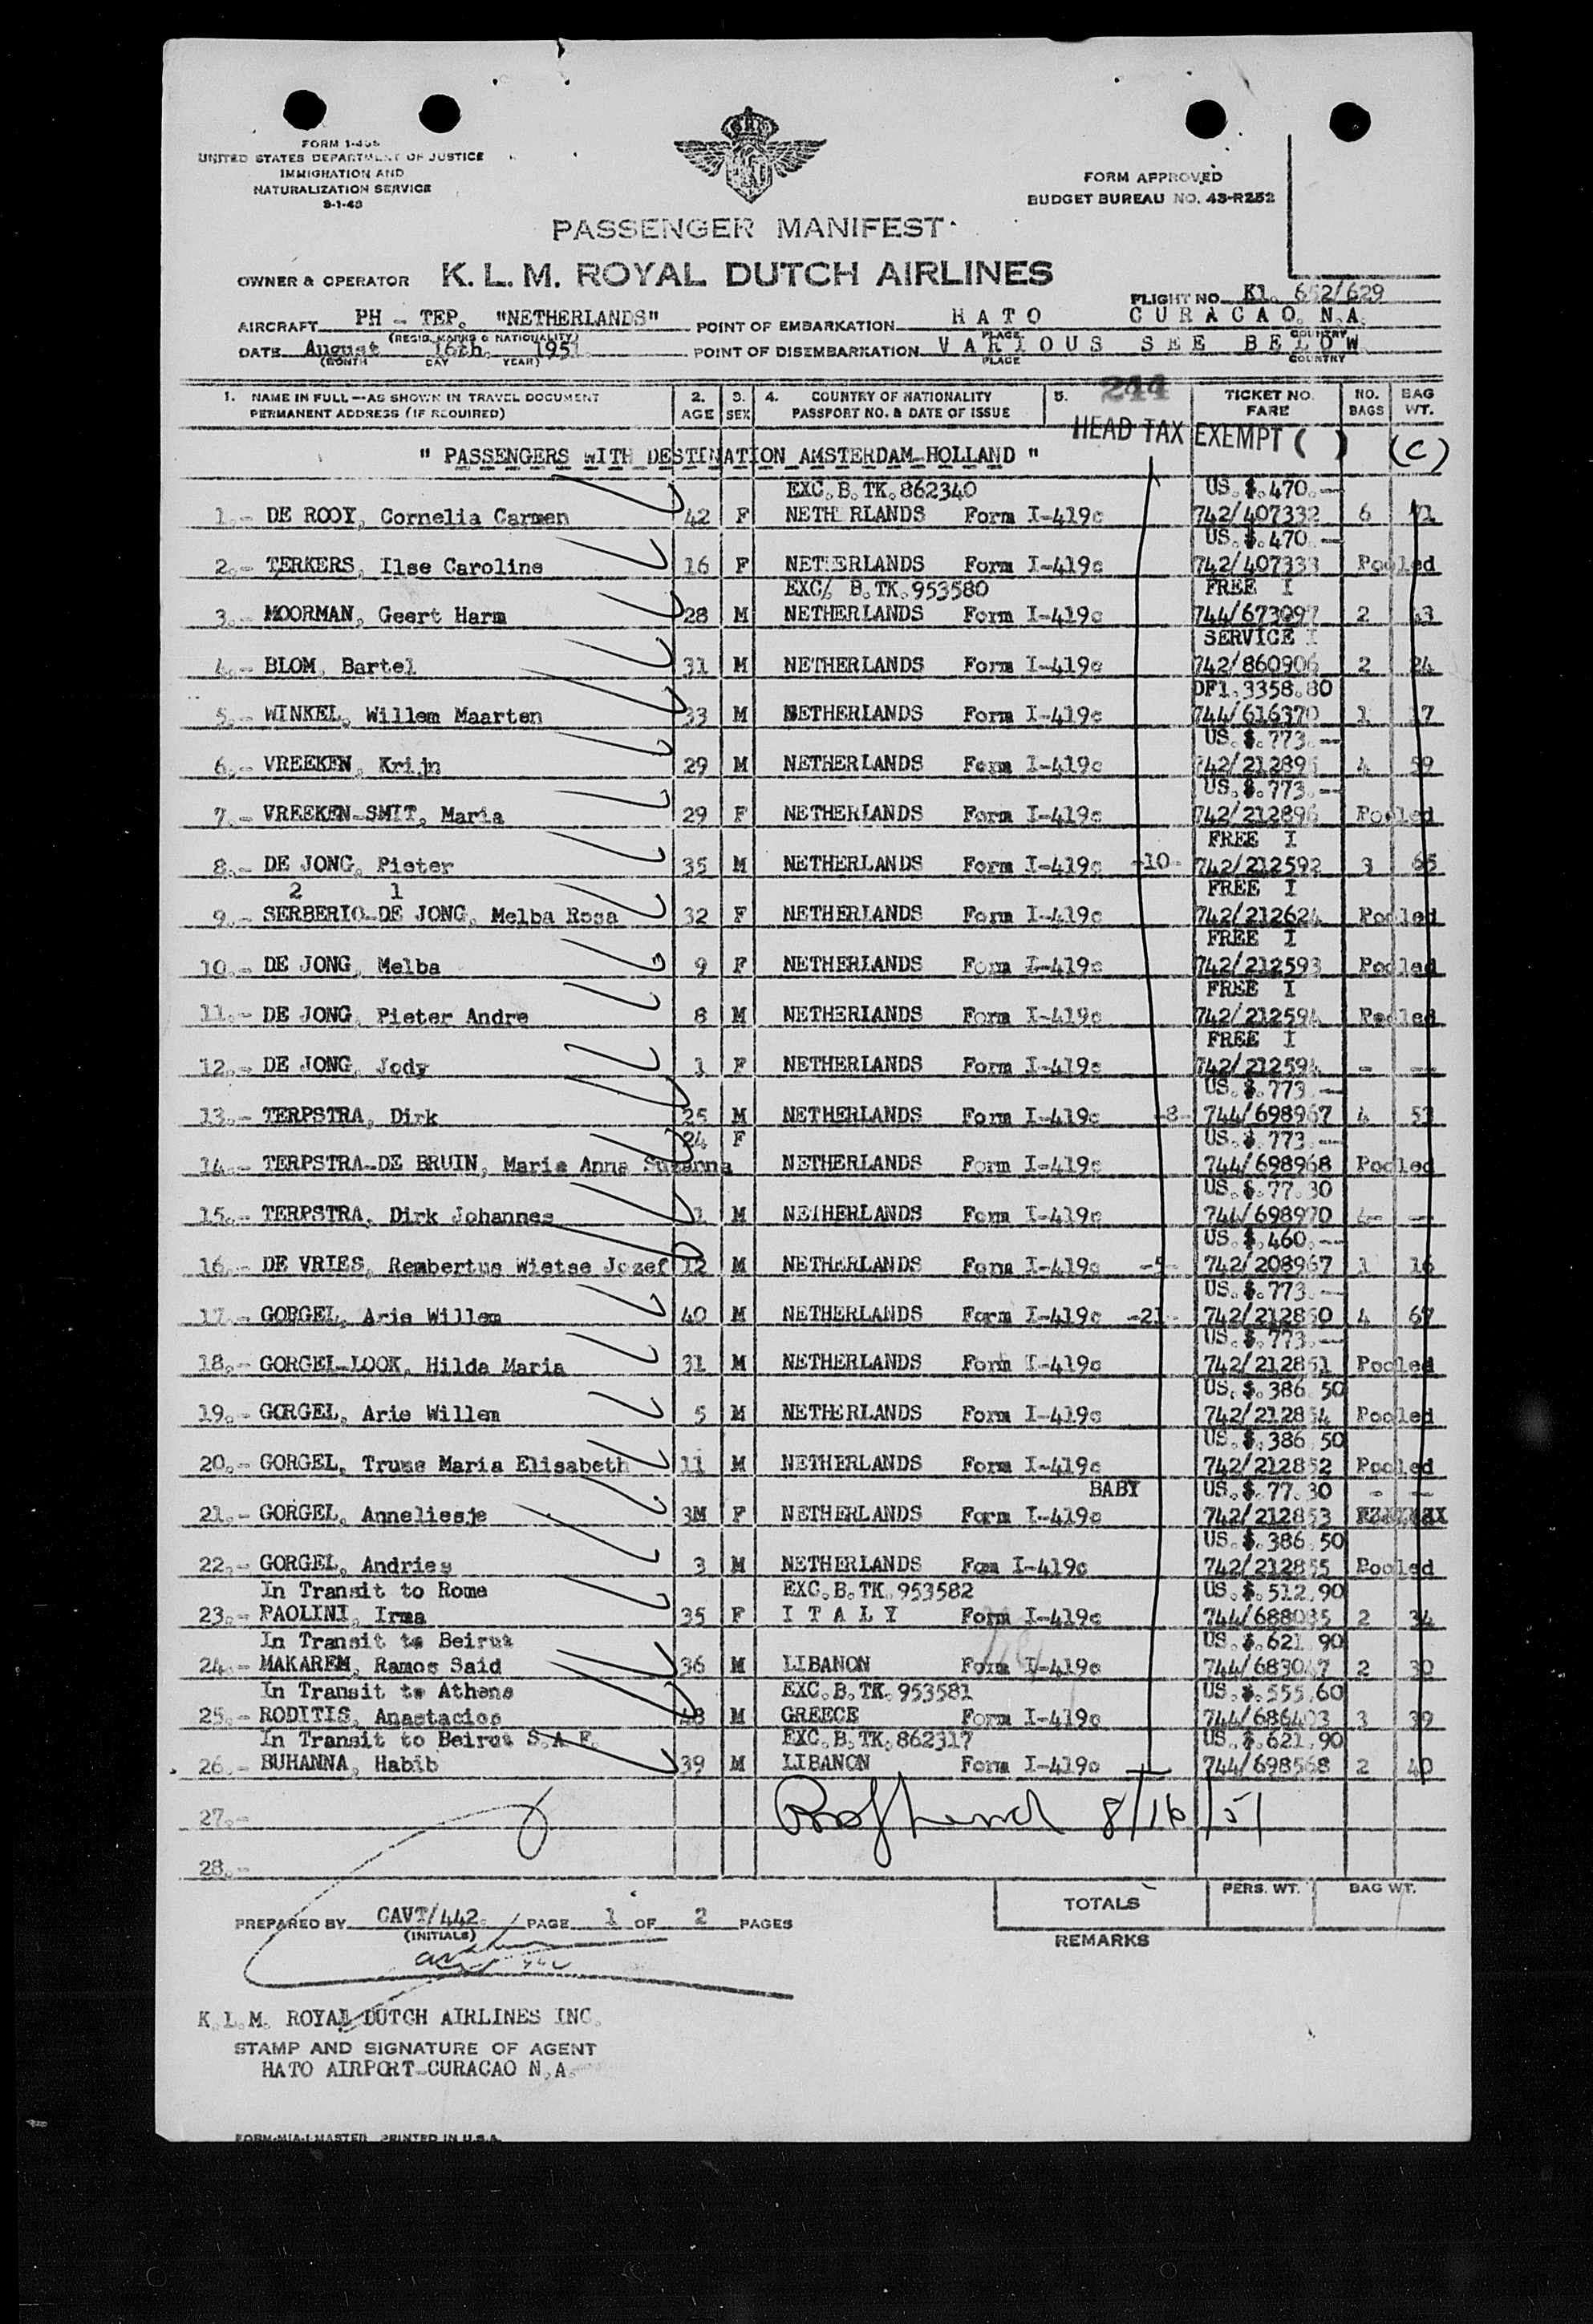 FORM I-466
UNITED STATES DEPARTMENT OF JUSTICE
IMMIGRATION AND
NATURALIZATION SERVICE
FORM APPROVED
BUDGET BUREAU NO. 43-R252
PASSENGER MANIFEST
OWNER & OPERATOR K. L. M. ROYAL DUTCH AIRLINES
FLIGHT NO. Kl. 652/629
AIRCRAFT PH - TEP. "NETHERLANDS" POINT OF EMBARKATION H A T O C U R A C A O. N.A.
(REGIS. MARKS & NATIONALITY) PLACE COUNTRY
DATE August 16th. 1951. POINT OF DISEMBARKATION V A R I O U S S E E B E L O W
(MONTH DAY YEAR) PLACE COUNTRY
244
1. NAME IN FULL—AS SHOWN IN TRAVEL DOCUMENT 2. 3. 4. COUNTRY OF NATIONALITY 5. TICKET NO. NO. BAG
PERMANENT ADDRESS (IF REQUIRED) AGE SEX PASSPORT NO. & DATE OF ISSUE FARE BAGS WT.
HEAD TAX EXEMPT ( ) (C)
" PASSENGERS WITH DESTINATION AMSTERDAM-HOLLAND "
EXC. B. TK. 862340 US. $. 470.--
1.- DE ROOY, Cornelia Carmen 42 F NETH RLANDS Form I-419c 742/407332 6 71
US. $. 470.--
2.- TERKERS, Ilse Caroline 16 F NETHERLANDS Form I-419c 742/407333 Pooled
EXC/. B. TK. 953580 FREE I
3.- MOORMAN, Geert Harm 28 M NETHERLANDS Form I-419c 744/673097 2 43
SERVICE I
4.- BLOM, Bartel 31 M NETHERLANDS Form I-419c 742/860906 2 24
DFl. 3358.80
5.- WINKEL, Willem Maarten 33 M NETHERLANDS Form I-419c 744/616370 1 17
US. $. 773.--
6.- VREEKEN, Krijn 29 M NETHERLANDS Form I-419c 742/212895 4 59
US. $. 773.--
7.- VREEKEN-SMIT, Maria 29 F NETHERLANDS Form I-419c 742/212896 Pooled
FREE I
8.- DE JONG, Pieter 35 M NETHERLANDS Form I-419c -10- 742/212592 3 65
2 1 FREE I
9.- SERBERIO-DE JONG, Melba Rosa 32 F NETHERLANDS Form I-419c 742/212624 Pooled
FREE I
10.- DE JONG, Melba 9 F NETHERLANDS Form I-419c 742/212593 Pooled
FREE I
11.- DE JONG, Pieter Andre 8 M NETHERLANDS Form I-419c 742/212594 Pooled
FREE I
12.- DE JONG, Jody 1 F NETHERLANDS Form I-419c 742/212594 - --
US. $. 773.--
13.- TERPSTRA, Dirk 25 M NETHERLANDS Form I-419c -8- 744/698967 4 53
24 F US. $. 773.--
14.- TERPSTRA-DE BRUIN, Maria Anna Suzanna NETHERLANDS Form I-419c 744/698968 Pooled
US. $. 77.30
15.- TERPSTRA, Dirk Johannes 1 M NETHERLANDS Form I-419c 744/698970 --
US. $. 460.--
16.- DE VRIES, Rembertus Wietse Jozef 12 M NETHERLANDS Form I-419c -5- 742/208967 1 16
US. $. 773.--
17.- GORGEL, Arie Willem 40 M NETHERLANDS Form I-419c -21- 742/212850 4 67
US. $. 773.--
18.- GORGEL-LOOK, Hilda Maria 31 M NETHERLANDS Form I-419c 742/212851 Pooled
US. $. 386.50
19.- GORGEL, Arie Willem 5 M NETHERLANDS Form I-419c 742/212854 Pooled
US. $. 386.50
20.- GORGEL, Truus Maria Elisabeth 11 M NETHERLANDS Form I-419c 742/212852 Pooled
BABY US. $. 77.30 - --
21.- GORGEL, Anneliesje 3M F NETHERLANDS Form I-419c 742/212853
US. $. 386.50
22.- GORGEL, Andries 3 M NETHERLANDS Fom I-419c 742/212855 Pooled
In Transit to Rome EXC. B. TK. 953582 US. $. 512.90
23.- PAOLINI, Irma 35 F I T A L Y Form I-419c 744/688035 2 34
In Transit to Beirut US. $. 621.90
24.- MAKAREM, Ramos Said 36 M LIBANON Form I-419c 744/683047 2 30
In Transit to Athens EXC. B. TK. 953581 US. $. 555.60
25.- RODITIS, Anastacios 48 M GREECE Form I-419c 744/686403 3 39
In Transit to Beirut S.A.F. EXC. B. TK. 862317 US. $. 621.90
26.- BUHANNA, Habib 39 M LIBANON Form I-419c 744/698568 2 40
27.- 8/16/51
28.-
TOTALS PERS. WT. BAG WT.
PREPARED BY CAVT/442. PAGE 1 OF 2 PAGES
(INITIALS)
REMARKS
K. L. M. ROYAL DUTCH AIRLINES INC.
STAMP AND SIGNATURE OF AGENT
HATO AIRPORT-CURACAO N.A.
FORM-MIA-1 MASTER PRINTED IN U.S.A.